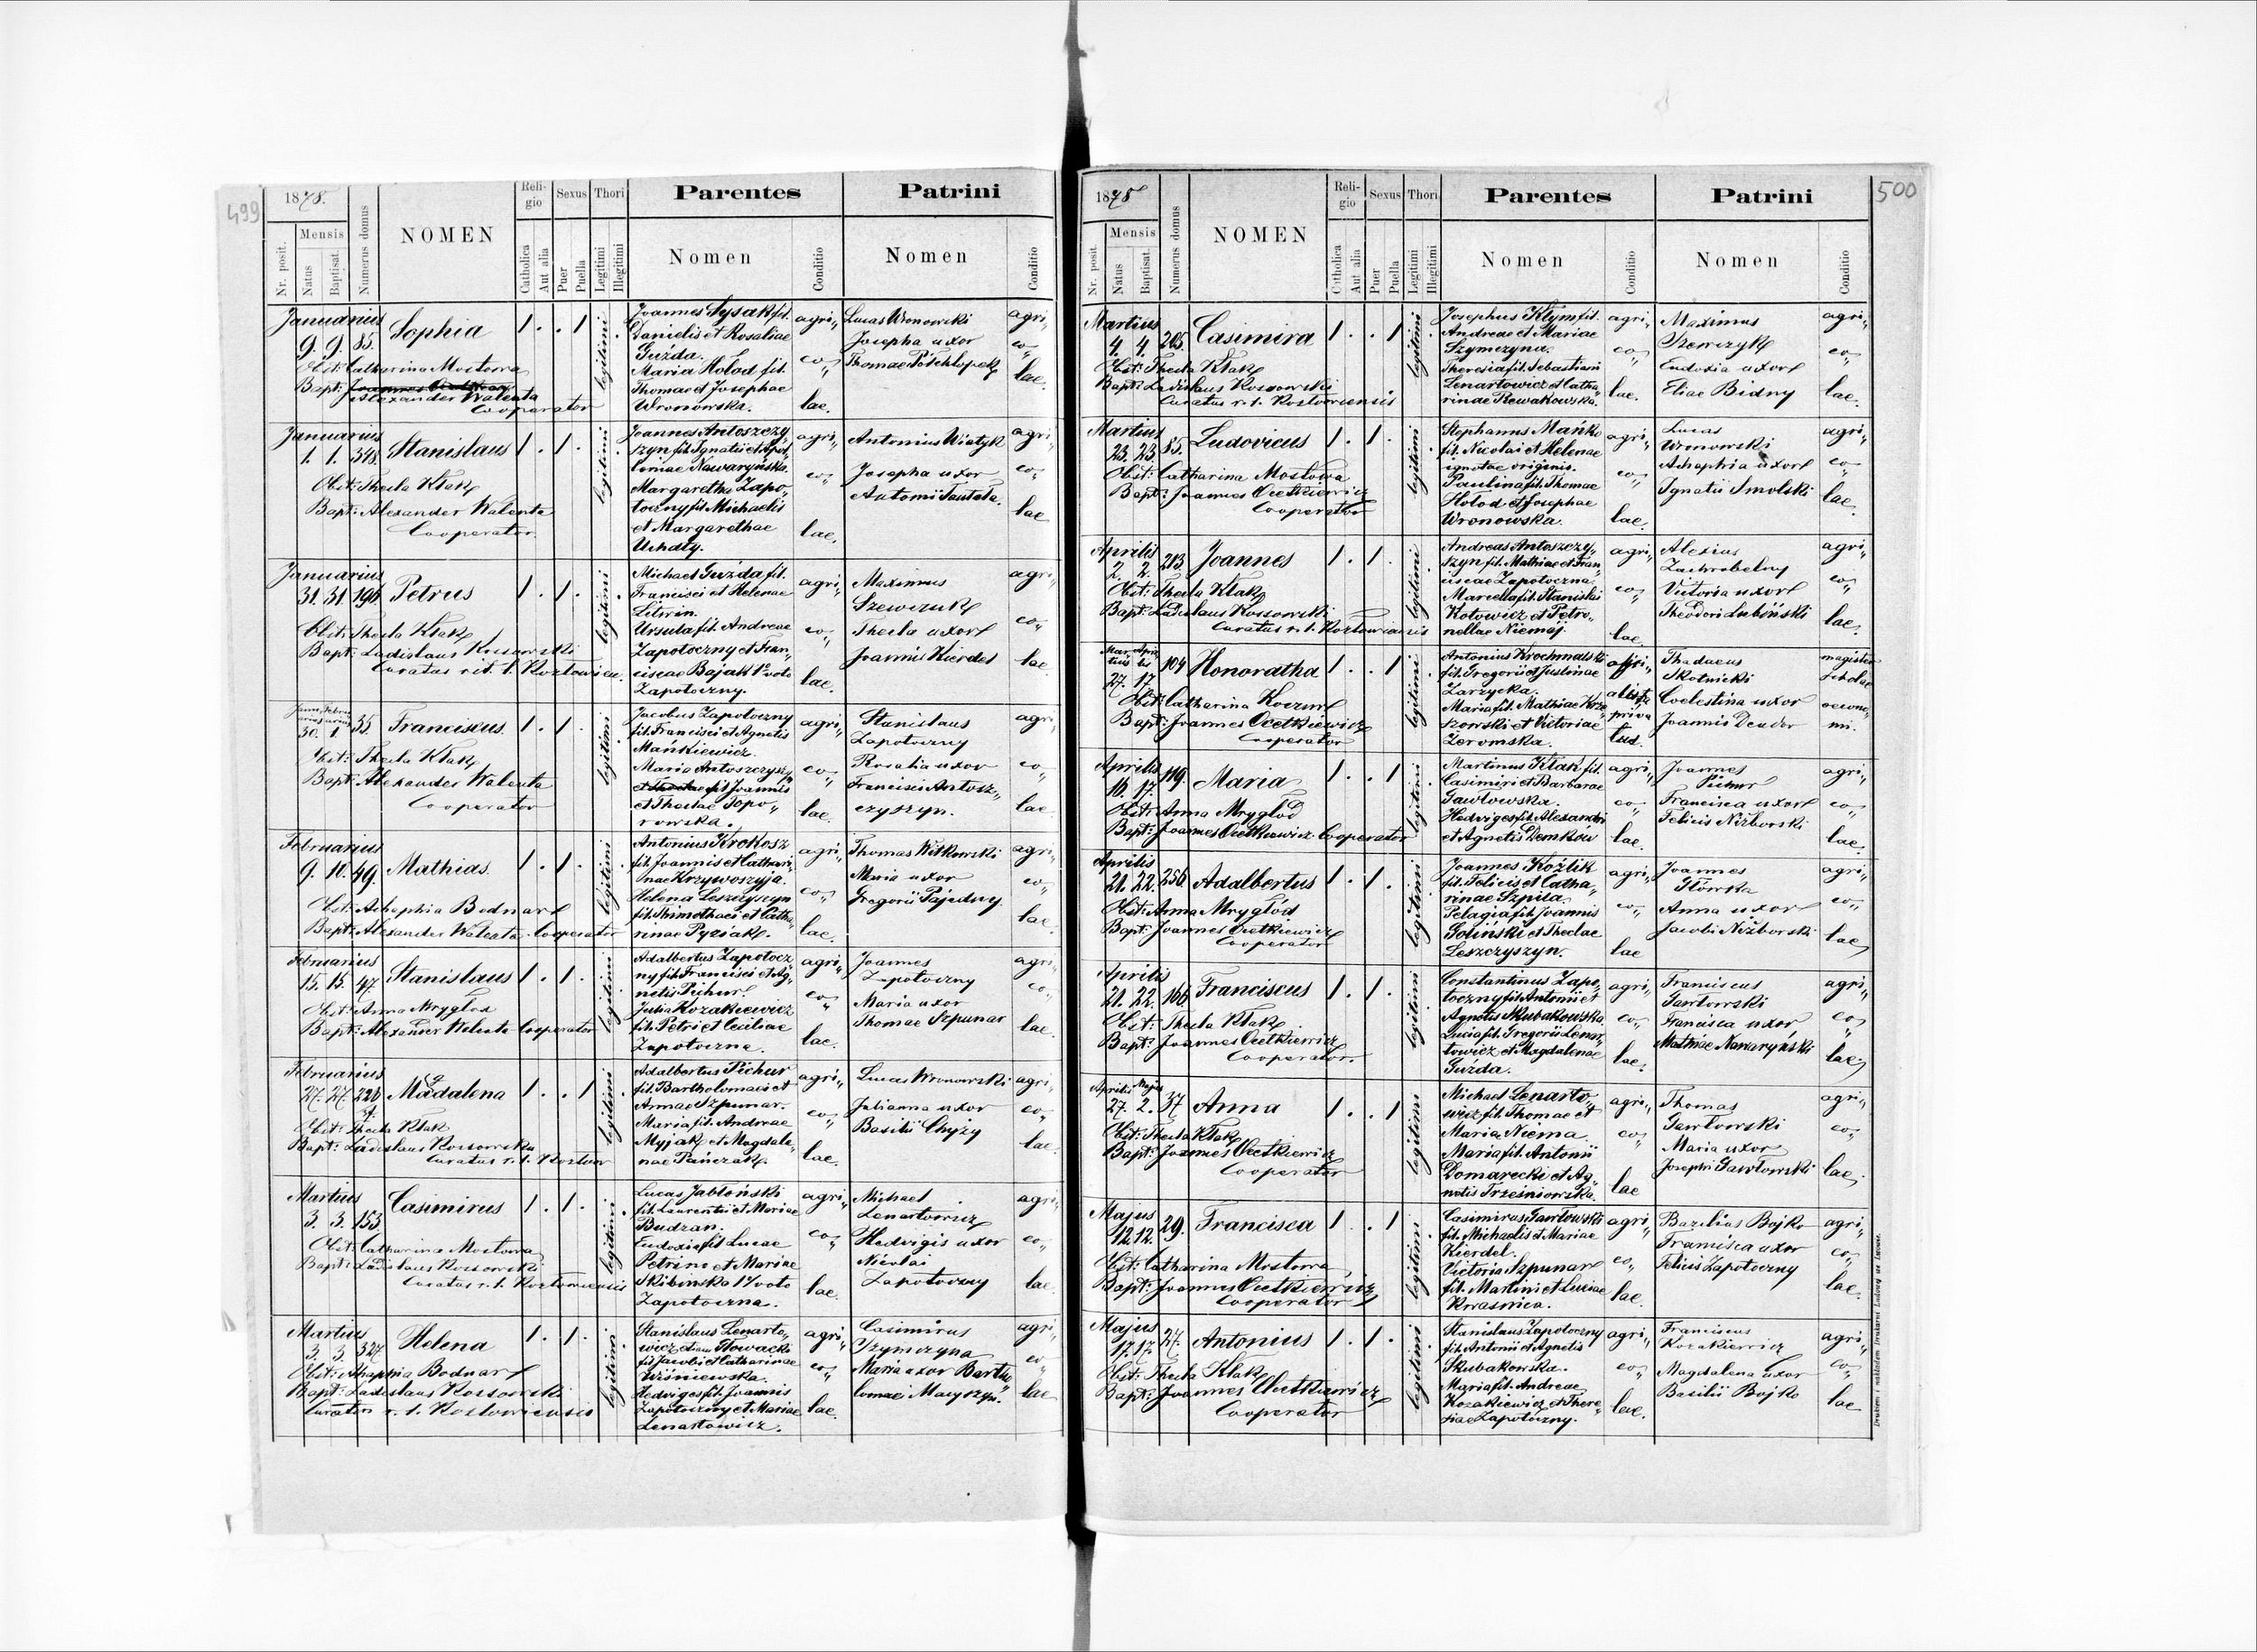 499
1878.
Nr. posit.
Mensis
Natus
Baptisat.
Numerus domus
NOMEN
Reli-
gio
Catholica
Aut alia
Sexus
Puer
Puella
Thori
Legitimi
Illegitimi
Parentes
Nomen
Conditio
Patrini
Nomen
Conditio
Januarius
9. 9. 85. Sophia 1 . . 1 legitimi
Obst: Catharina Mostowa
Bapt:
Alexander Walenta
Cooperator
Joannes Sysak fil.
Danielis et Rosaliae
Guzda.
Maria Hołod fil.
Thomae et Josephae
Wronowska.
agri„
co„
lae.
Lucas Wronowski
Josepha uxor
Thomae Półchłopek
agri„
co„
lae.
Januarius
1. 1. 348. Stanislaus 1 . 1 . legitimi
Obst: Thecla Kłak
Bapt: Alexander Walenta
Cooperator.
Joannes Antoszczy„
szyn fil. Ignatii et Apol„
loniae Nawaryńska.
Margaretha Zapo„
toczny fil. Michaelis
et Margarethae
Uchały.
agri„
co„
lae.
Antonius Wiatyk
Josepha uxor
Antonii Tauteta.
agri„
co„
lae
Januarius
31. 31. 196. Petrus 1 . 1 . legitimi
Obst: Thecla Kłak
Bapt: Ladislaus Kossowski
Curatus rit. l. Kozłowien.
Michael Guzda fil.
Francisci et Helenae
Litwin.
Ursula fil. Andreae
Zapotoczny et Fran„
ciscae Bajak 1º voto
Zapotoczny.
agri„
co„
lae.
Maximus
Szewczuk
Thecla uxor
Joannis Kierdel
agri„
co„
lae
30. 1 35. Franciskus. 1 . 1 . legitimi
Obst: Thecla Kłak
Bapt: Alexander Walenta
Cooperator
Jacobus Zapotoczny
fil. Francisci et Agnetis
Mańkiewicz.
Maria Antoszczyszyn
fil. Joannis
et Theclae Topo„
rowska.
agri„
co„
lae.
Stanislaus
Zapotoczny
Rosalia uxor
Francisci Antosz„
czyszyn.
agri„
co„
lae.
Februarius
9. 10. 49. Mathias. 1 . 1 . legitimi
Obst: Achaphia Bodnar
Bapt: Alexander Walenta Cooperator
Antonius Krokosz
fil. Joannis et Cathari„
nae Krzywoszyja.
Helena Leszczyszyn
fil. Thimothaei et Catha„
rinae Pyziak.
agri„
co„
lae.
Thomas Witkowski
Maria uxor
Gregorii Pajedny.
agri„
co„
lae.
Februarius
15. 15. 47. Stanislaus 1 . 1 . legitimi
Obst: Anna Mrygłod
Bapt: Alexander Walenta Cooperator
Adalbertus Zapotocz„
ny fil. Francisci et Ag„
netis Pichur.
Julia Kozakiewicz
fil. Petri et Ceciliae
Zapotoczna.
agri„
co„
lae.
Joannes
Zapotoczny
Maria uxor
Thomae Szpunar
agri„
co„
lae.
Februarius
27. 27. 226 Magdalena 1 . . 1 legitimi
Obst: Thecla Kłak
Bapt: Ladislaus Kossowski
Curatus r. l. Kozłow
Adalbertus Pichur
fil. Bartholomaei et
Annae Szpunar.
Maria fil. Andreae
Myjak et Magdale„
nae Pańczak.
agri„
co„
lae.
Lucas Wronowski
Julianna uxor
Basilii Chyży
agri„
co„
lae.
Martius
3. 3. 153 Casimirus 1 . 1 . legitimi
Obst: Catharina Mostowa
Bapt: Ladislaus Kossowski
Curatus r. l. Kozłowiensis
Lucas Jabłoński
fil. Laurentii et Mariae
Budzan.
Eudoxia fil. Lucae
Petrino et Mariae
Skibinska 1º voto
Zapotoczna.
agri„
co„
lae.
Michael
Lenartowicz
Hedvigis uxor
Nicolai
Zapotoczny
agri„
co„
lae.
Martius
3. 3. 327 Helena 1 . 1 . legitimi
Obst: Ahaphia Bodnar
Bapt: Ladislaus Kossowski
Curatus r. l. Kozłowiensis
Stanislaus Lenarto„
wicz Nowacki
fil. Jacobi et Catharinae
Wiśniewska.
Hedviges fil. Joannis
Zapotoczny et Mariae
Lenartowicz.
agri„
co„
lae.
Casimirus
Szymczyna
Maria uxor Bartho„
lomaei Maryszyn.
agri„
co„
lae
500
1878
Nr. posit.
Mensis
Natus
Baptisat.
Numerus domus
NOMEN
Reli-
gio
Catholica
Aut alia
Sexus
Puer
Puella
Thori
Legitimi
Illegitimi
Parentes
Nomen
Conditio
Patrini
Nomen
Conditio
Martius
4. 4. 205. Casimira 1 . . 1 legitimi
Obst: Thecla Kłak
Bapt: Ladislaus Kossowski
Curatus r. l. Kozłowiensis
Josephus Kłym fil.
Andreae et Mariae
Szymczyna.
Theresia fil. Sebastiani
Lenartowicz et Catha„
rinae Rewakowska.
agri„
co„
lae.
Maximus
Szewczyk
Eudoxia uxor
Eliae Bidny
agri„
co„
lae.
Martius
23. 23. 85. Ludovicus 1 . 1 . legitimi
Obst: Catharina Mostowa
Bapt: Joannes Ocetkiewicz
Cooperator
Stephanus Mańko
fil. Nicolai et Helenae
ignotae originis.
Paulina fil. Thomae
Hołod et Josephae
Wronowska.
agri„
co„
lae.
Lucas
Wronowski
Achaphia uxor
Ignatii Smolski
agri„
co„
lae.
Aprilis
2. 2. 213. Joannes 1 . 1 . legitimi
Obst: Thecla Kłak
Bapt: Ladislaus Kossowski
Curatus r. l. Kozłowiensis
Andreas Antoszczy„
szyn fil. Mathiae et Fran„
ciscae Zapotoczna.
Marcella fil. Stanislai
Kotowicz et Petro„
nellae Niemaj.
agri„
co„
lae.
Alexius
Zachrobelny
Victoria uxor
Theodori Lubiński
agri„
co„
lae.
27. 17 104 Honoratha 1 . . 1 legitimi
Obst: Catharina Koczur
Bapt: Joannes Ocetkiewicz
Cooperator
Antonius Krochmalski
fil. Gregorii et Justinae
Zarzycka.
Maria fil. Mathiae Krze„
szowski et Victoriae
Żeromska.
Thadaeus
Skotnicki
Coelestina uxor
Joannis Deudor
magister
scholae
oecono„
mi.
Aprilis
16. 17. 119. Maria 1 . . 1 legitimi
Obst: Anna Mrygłod
Bapt: Joannes Ocetkiewicz Cooperator
Martinus Kłak fil.
Casimiri et Barbarae
Gawłowska.
Hedviges fil. Alexandri
et Agnetis Demków
agri„
co„
lae.
Joannes
Pichur
Francisca uxor
Felicis Niżborski
agri„
co„
lae.
Aprilis
21. 22. 256. Adalbertus 1 . 1 . legitimi
Obst: Anna Mrygłód
Bapt: Joannes Ocetkiewicz
Cooperator
Joannes Koźlik
fil. Felicis et Catha„
rinae Szpila.
Pelagia fil. Joannis
Soliński et Theclae
Leszczyszyn.
agri„
co„
lae
Joannes
Główka
Anna uxor
Jacobi Niżborski
agri„
co„
lae
Aprilis
21. 22. 166 Franciscus 1 . 1 . legitimi
Obst: Thecla Kłak
Bapt: Joannes Ocetkiewicz
Cooperator.
Constantinus Zapo„
toczny fil. Antonii et
Agnetis Skubakowska.
Lucia fil. Gregorii Lenar„
towicz et Magdalenae
Guzda.
agri„
co„
lae.
Franciscus
Gawłowski
Francisca uxor
Mathiae Nawaryński
agri„
co„
lae.
Aprilis Majus
27. 2. 37 Anna 1 . . 1 legitimi
Obst: Thecla Kłak
Bapt: Joannes Ocetkiewicz
Cooperator
Michael Lenarto„
wicz fil. Thomae et
Maria Niema.
Maria fil. Antonii
Domarecki et Ag„
netis Trześniowska.
agri„
co„
lae
Thomas
Gawłowski
Maria uxor
Josephi Gawłowski
agri„
co„
lae.
Majus
12. 12. 29. Francisca 1 . . 1 legitimi
Obst: Catharina Mostowa
Bapt: Joannes Ocetkiewicz
Cooperator
Casimirus Gawłowski
fil. Michaelis et Mariae
Kierdel.
Victoria Szpunar
fil. Martini et Luciae
Kwasnica.
agri„
co„
lae.
Bazilius Bojko
Francisca uxor
Felicis Zapotoczny
agri„
co„
lae.
Majus
17. 17. 27. Antonius 1 . 1 . legitimi
Obst: Thecla Kłak
Bapt: Joannes Ocetkiewicz
Cooperator
Stanislaus Zapotoczny
fil. Antonii et Agnetis
Skubakowska.
Maria fil. Andreae
Kozakiewicz et There„
siae Zapotoczny.
agri„
co„
lae.
Franciscus
Kozakiewicz
Magdalena uxor
Basilii Bojko
agri„
co„
lae
Drukiem i nakładem Drukarni Ludowej we Lwowie.